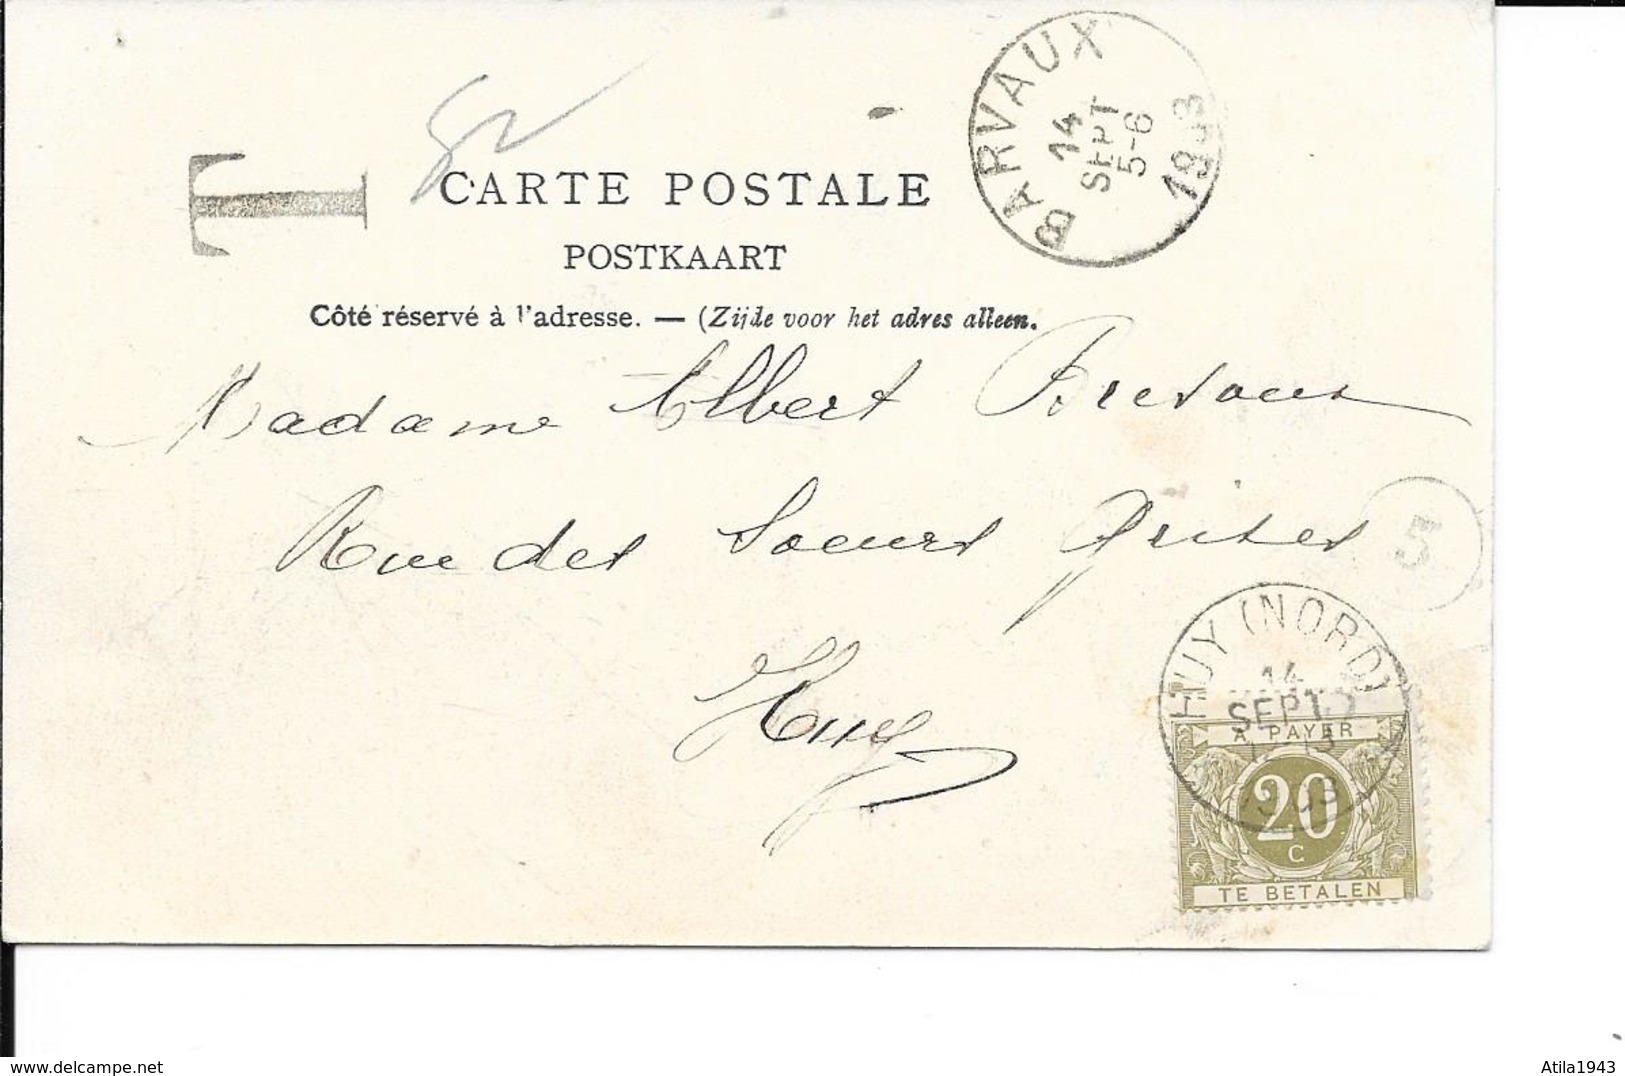 BARVAUX
14
SEPT
5-6
1903
T
CARTE POSTALE
POSTKAART
Côté réservé à l'adresse. — (Zijde voor het adres alleen.
Madame Albert
Rue des Soeurs Grises
5
Huy
HUY (NORD)
14
SEPT
A PAYER
20
C
TE BETALEN
Atila1943